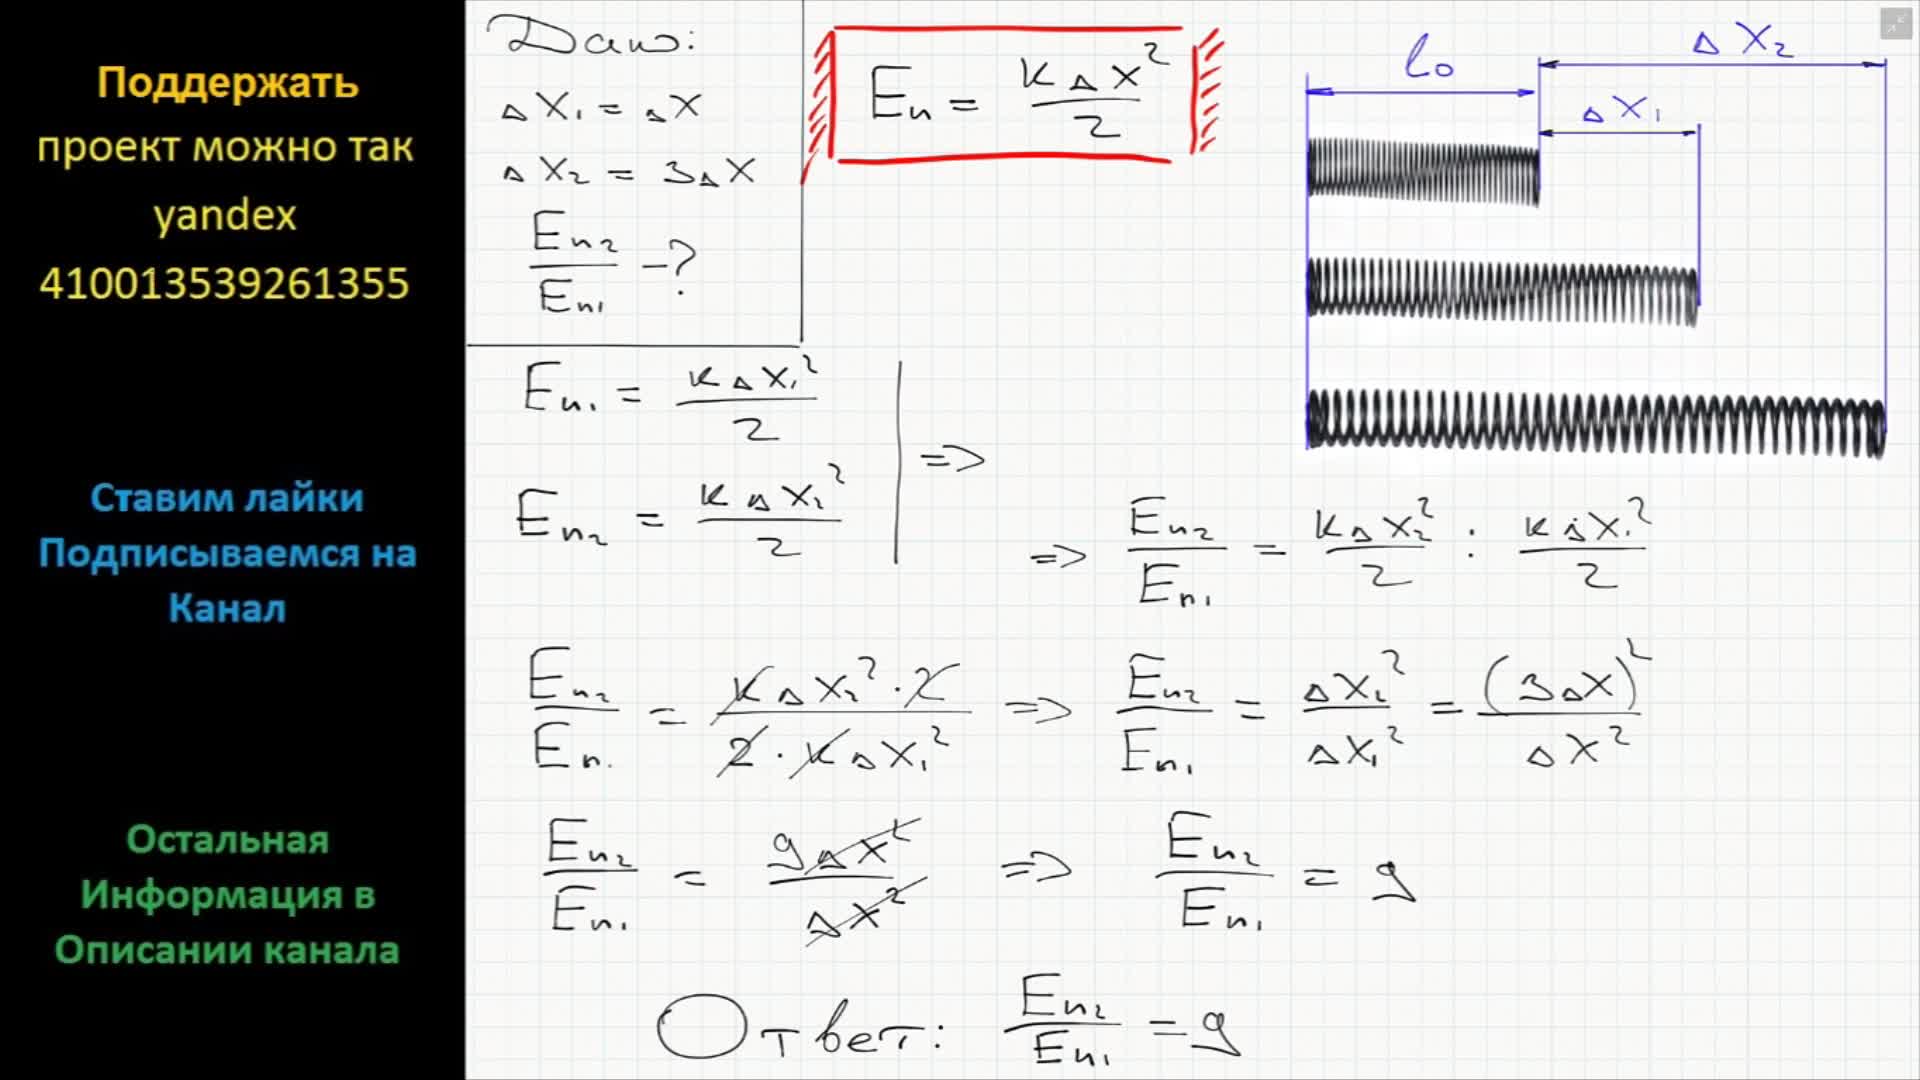 Поддержать
проект можно так
yandex
410013539261355
Ставим лайки
Подписываемся на
Канал
Остальная
Информация в
Описании канала
Дано:
Δx₁ = Δx
Δx₂ = 3Δx
Eп₂/Eп₁ - ?
Eп = kΔx²/2
l₀
Δx₂
Δx₁
Eп₁ = kΔx₁²/2
Eп₂ = kΔx₂²/2
=>
=> Eп₂/Eп₁ = kΔx₂²/2 : kΔx₁²/2
Eп₂/Eп. = kΔx₂²·2/2·kΔx₁² => Eп₂/Eп₁ = Δx₂²/Δx₁² = (3Δx)²/Δx²
Eп₂/Eп₁ = 9Δx²/Δx² => Eп₂/Eп₁ = 9
Ответ: Eп₂/Eп₁ = 9